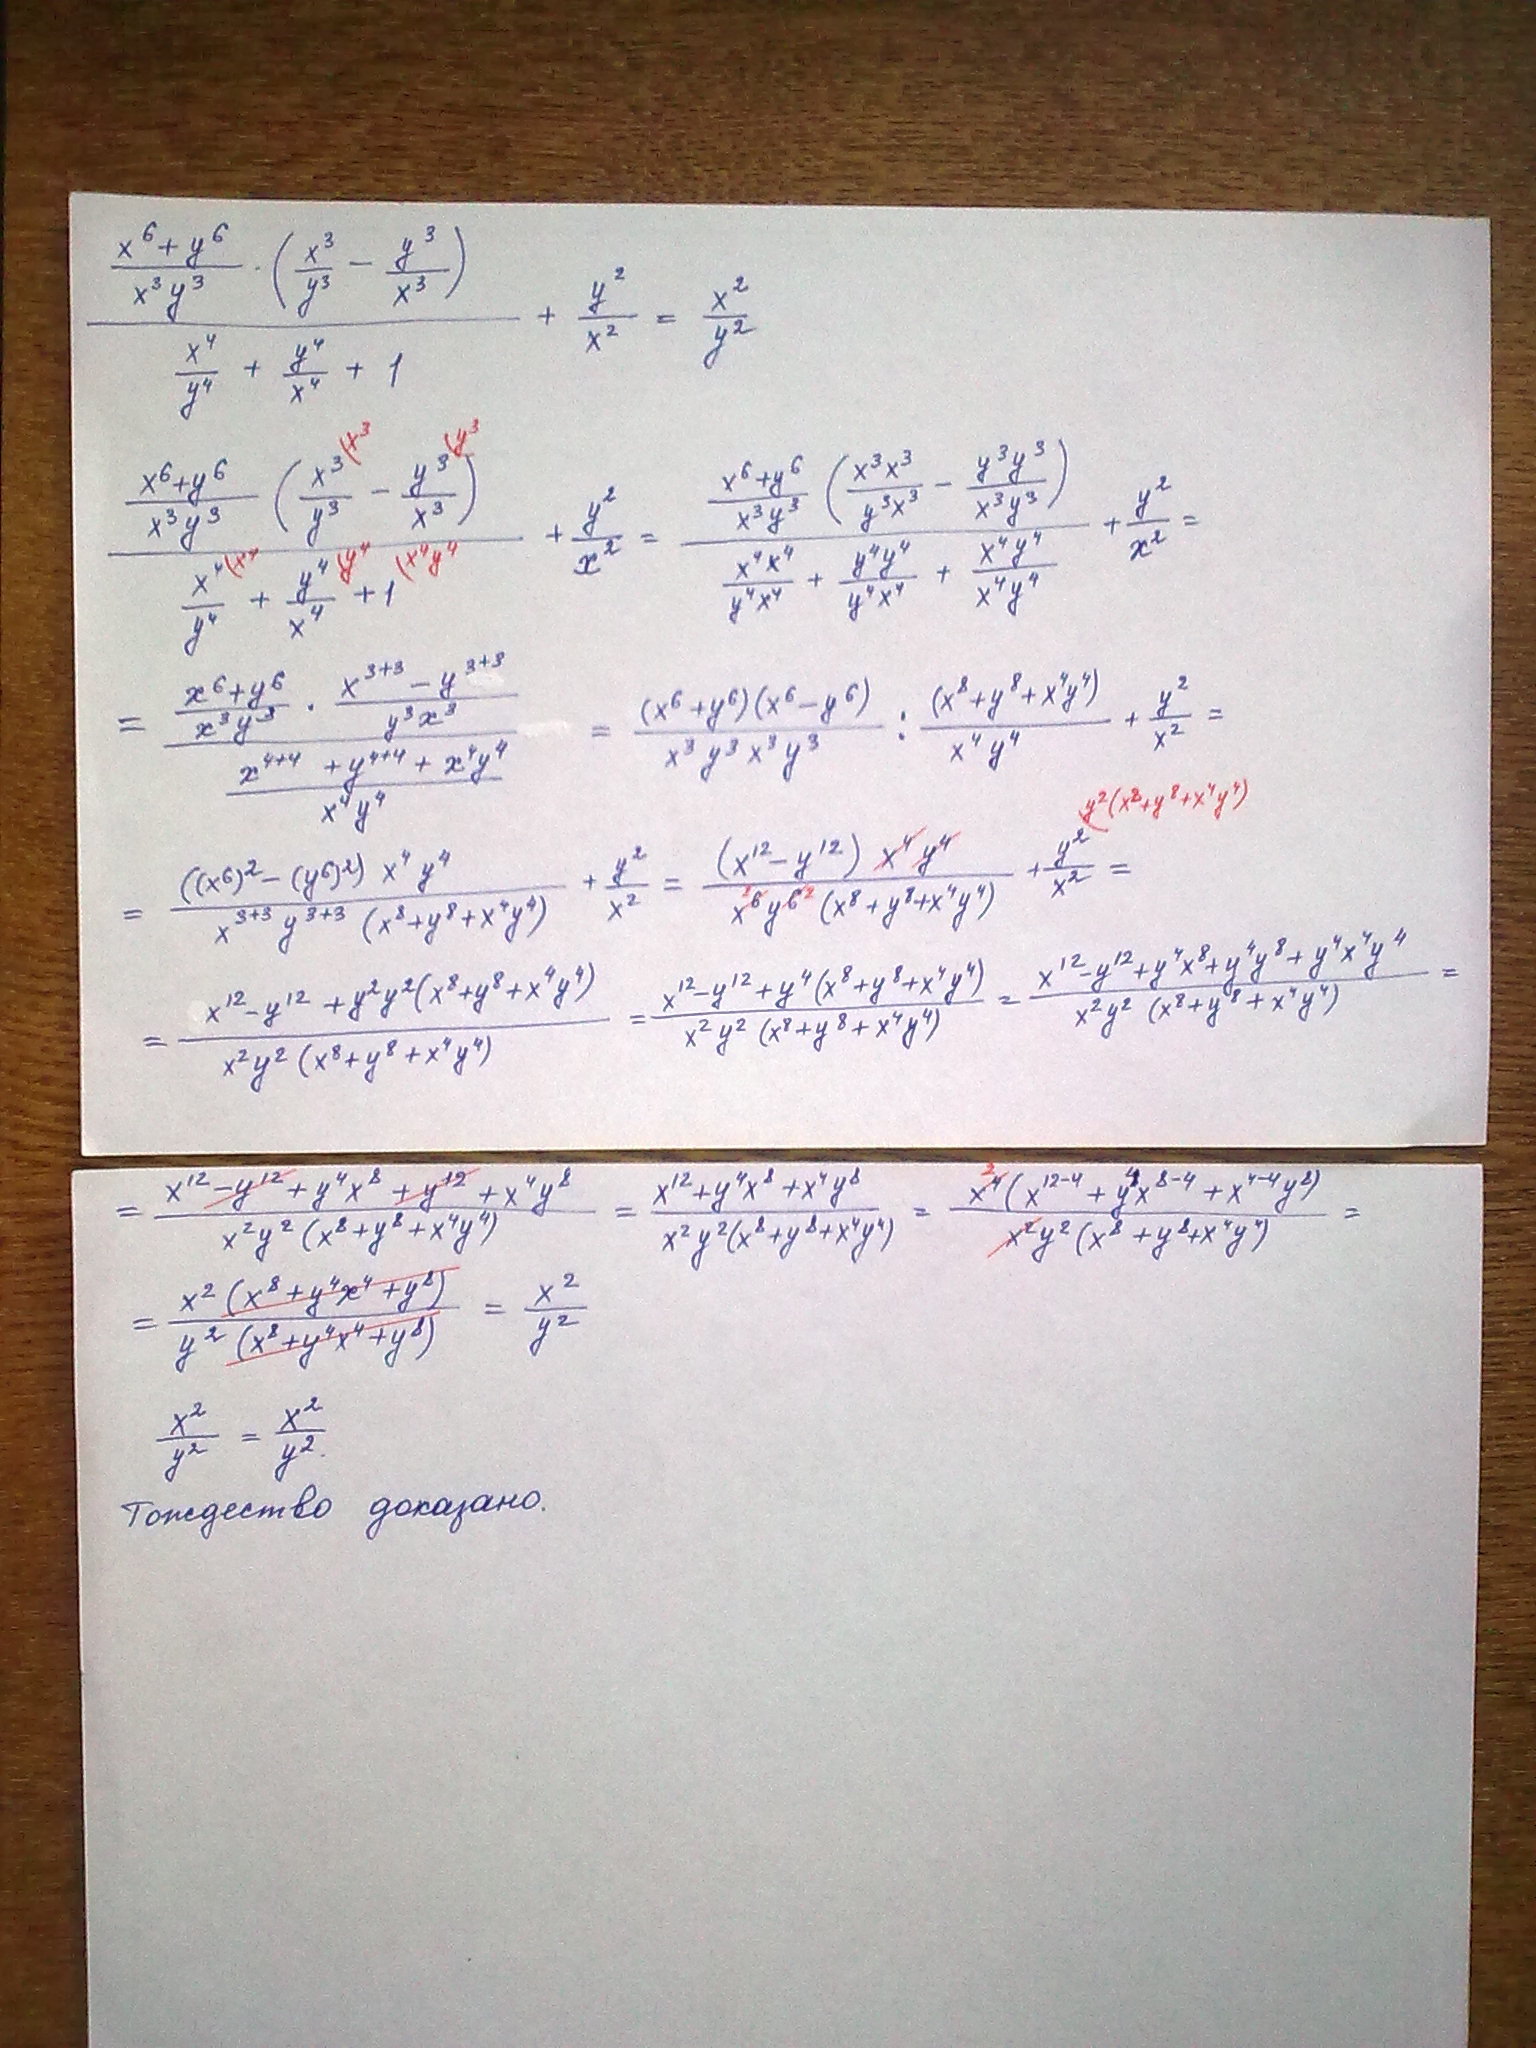 \frac{\frac{x^6+y^6}{x^3y^3} \cdot \left(\frac{x^3}{y^3} - \frac{y^3}{x^3}\right)}{\frac{x^4}{y^4} + \frac{y^4}{x^4} + 1} + \frac{y^2}{x^2} = \frac{x^2}{y^2}
\frac{\frac{x^6+y^6}{x^3y^3} \left(\frac{x^3}{y^3}^{(x^3} - \frac{y^3}{x^3}^{(y^3}\right)}{\frac{x^4}{y^4}^{(x^4} + \frac{y^4}{x^4}^{(y^4} + 1^{(x^4y^4}} + \frac{y^2}{x^2} = \frac{\frac{x^6+y^6}{x^3y^3} \left(\frac{x^3x^3}{y^3x^3} - \frac{y^3y^3}{x^3y^3}\right)}{\frac{x^4x^4}{y^4x^4} + \frac{y^4y^4}{y^4x^4} + \frac{x^4y^4}{x^4y^4}} + \frac{y^2}{x^2} =
= \frac{\frac{x^6+y^6}{x^3y^3} \cdot \frac{x^{3+3} - y^{3+3}}{y^3x^3}}{\frac{x^{4+4} + y^{4+4} + x^4y^4}{x^4y^4}} = \frac{(x^6+y^6)(x^6-y^6)}{x^3y^3x^3y^3} : \frac{(x^8+y^8+x^4y^4)}{x^4y^4} + \frac{y^2}{x^2} =
= \frac{((x^6)^2-(y^6)^2) x^4y^4}{x^{3+3}y^{3+3}(x^8+y^8+x^4y^4)} + \frac{y^2}{x^2} = \frac{(x^{12}-y^{12}) x^4y^4}{x^6y^6(x^8+y^8+x^4y^4)} + \frac{y^2}{x^2}^{(y^2(x^8+y^8+x^4y^4)} =
= \frac{x^{12}-y^{12}+y^2y^2(x^8+y^8+x^4y^4)}{x^2y^2(x^8+y^8+x^4y^4)} = \frac{x^{12}-y^{12}+y^4(x^8+y^8+x^4y^4)}{x^2y^2(x^8+y^8+x^4y^4)} = \frac{x^{12}-y^{12}+y^4x^8+y^4y^8+y^4x^4y^4}{x^2y^2(x^8+y^8+x^4y^4)} =
= \frac{x^{12}-y^{12}+y^4x^8+y^{12}+x^4y^8}{x^2y^2(x^8+y^8+x^4y^4)} = \frac{x^{12}+y^4x^8+x^4y^8}{x^2y^2(x^8+y^8+x^4y^4)} = \frac{x^4(x^{12-4}+y^4x^{8-4}+x^{4-4}y^8)}{x^2y^2(x^8+y^8+x^4y^4)} =
= \frac{x^2(x^8+y^4x^4+y^8)}{y^2(x^8+y^4x^4+y^8)} = \frac{x^2}{y^2}
\frac{x^2}{y^2} = \frac{x^2}{y^2}.
Тождество доказано.